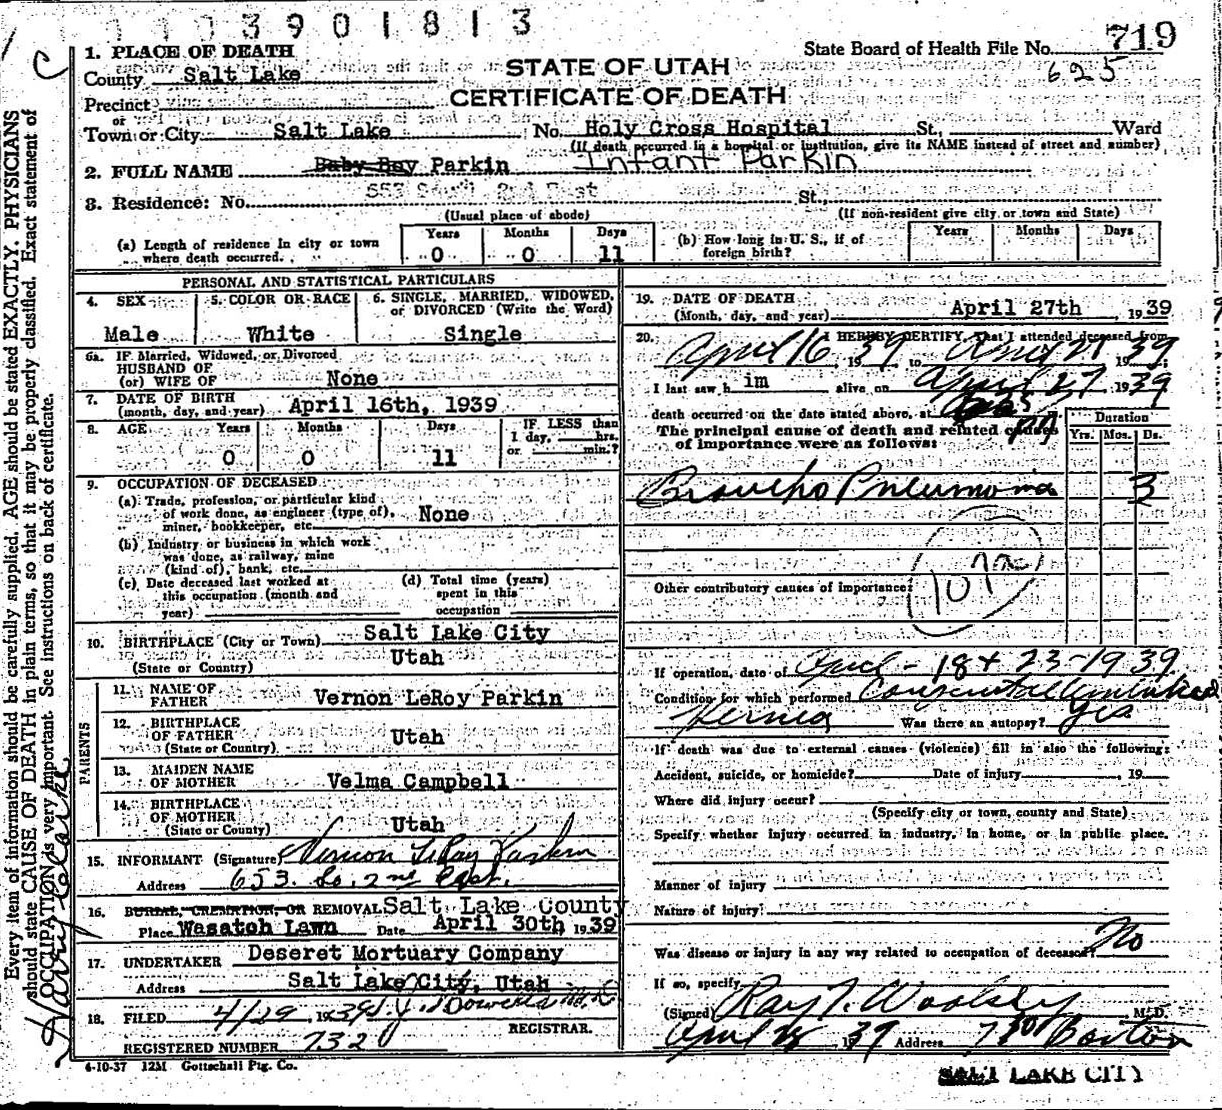 1 1 0 3 9 0 1 8 1 3
719
625
C
1. PLACE OF DEATH
State Board of Health File No.
County Salt Lake
STATE OF UTAH
CERTIFICATE OF DEATH
Precinct
or
Town or City Salt Lake No. Holy Cross Hospital St., Ward
(If death occurred in a hospital or institution, give its NAME instead of street and number)
2. FULL NAME Baby Boy Parkin Infant Parkin
653 South 2nd East
3. Residence: No. St.,
(Usual place of abode) (If non-resident give city or town and State)
(a) Length of residence in city or town where death occurred. Years 0 Months 0 Days 11
(b) How long in U. S., if of foreign birth? Years Months Days
PERSONAL AND STATISTICAL PARTICULARS
4. SEX Male
5. COLOR OR RACE White
6. SINGLE, MARRIED, WIDOWED, or DIVORCED (Write the Word) Single
6a. IF Married, Widowed, or Divorced
HUSBAND OF
(or) WIFE OF None
7. DATE OF BIRTH
(month, day, and year) April 16th, 1939
8. AGE Years 0 Months 0 Days 11
IF LESS than 1 day, hrs. or min.?
9. OCCUPATION OF DECEASED
(a) Trade, profession, or particular kind
of work done, as engineer (type of),
miner, bookkeeper, etc. None
(b) Industry or business in which work
was done, as railway, mine
(kind of), bank, etc.
(c) Date deceased last worked at
this occupation (month and
year)
(d) Total time (years)
spent in this
occupation
10. BIRTHPLACE (City or Town) Salt Lake City
(State or Country) Utah
PARENTS
11. NAME OF
FATHER Vernon LeRoy Parkin
12. BIRTHPLACE
OF FATHER
(State or Country) Utah
13. MAIDEN NAME
OF MOTHER Velma Campbell
14. BIRTHPLACE
OF MOTHER
(State or Country) Utah
15. INFORMANT (Signature) Vernon LeRoy Parkin
Address 653 So. 2nd East.
16. BURIAL, CREMATION, OR REMOVAL Salt Lake County
Place Wasatch Lawn Date April 30th 1939
17. UNDERTAKER Deseret Mortuary Company
Address Salt Lake City, Utah
18. FILED 4/29 1939
REGISTRAR.
REGISTERED NUMBER 732
4-10-37 12M Gottschall Ptg. Co.
19. DATE OF DEATH
(Month, day, and year) April 27th, 1939
20. I HEREBY CERTIFY, That I attended deceased from
April 16 1939 to April 27 1939
I last saw him alive on April 27 1939
death occurred on the date stated above, at PM
The principal cause of death and related causes
of importance were as follows:
Duration
Yrs. Mos. Ds.
Broncho Pneumonia 3
Other contributory causes of importance:
107
If operation, date of April - 18 + 23-1939
Condition for which performed Congenital Umbilical
Hernia Was there an autopsy? Yes
If death was due to external causes (violence) fill in also the following:
Accident, suicide, or homicide? Date of injury , 19
Where did injury occur?
(Specify city or town, county and State)
Specify whether injury occurred in industry, in home, or in public place.
Manner of injury
Nature of injury
Was disease or injury in any way related to occupation of deceased? No
If so, specify
(Signed) Ray T. Woolsey M.D.
April 1939 Address Boston
SALT LAKE CITY
Every item of information should be carefully supplied. AGE should be stated EXACTLY. PHYSICIANS
should state CAUSE OF DEATH in plain terms, so that it may be properly classified. Exact statement of
OCCUPATION is very important. See instructions on back of certificate.